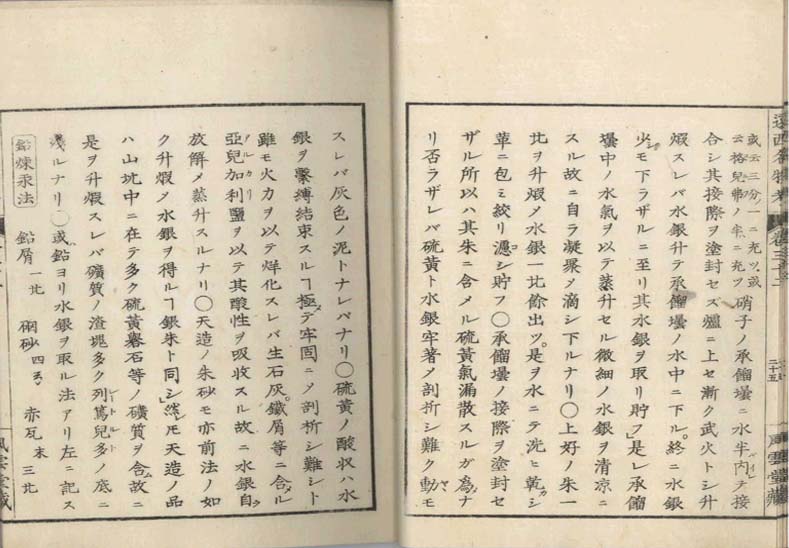 遠西名物考
或云三分ノ一ニ充ツ或
云格兒弗ノ半ニ充ツ
硝子ノ承餾壜ニ水半内テ接
合シ其接際ヲ塗封セズ爐ニ上セ漸ク武火トシ升
煆スレバ水銀升テ承餾壜ノ水中ニ下ル終ニ水銀
少モ下ラザルニ至リ其水銀ヲ取リ貯フ是レ承餾
壜中ノ水氣ヲ以テ蒸升セル微細ノ水銀ヲ清凉ニ
スル故ニ自ラ凝聚メ滴シ下ルナリ〇上好ノ朱一
比ヲ升煆メ水銀一比餘出ツ是ヲ水ニテ洗ヒ乾シ
革ニ包ミ絞リ濾シ貯フ〇承餾壜ノ接際ヲ塗封セ
ザル所以ハ其朱ニ含メル硫黄氣漏散スルガ為ナ
リ否ラザレバ硫黄ト水銀牢著メ剖析シ難ク動モ
二十五
風雲堂藏
スレバ灰色ノ泥トナレバナリ〇硫黄ノ酸収ハ水
銀ヲ緊縛結束スルヿ極テ牢固ニメ剖析シ難シト
雖モ火力ヲ以テ烊化スレバ生石灰鐵屑等ニ合ル
亞兒加利鹽ヲ以テ其酸性ヲ吸收スル故ニ水銀自ラ
放解メ蒸升スルナリ〇天造ノ朱砂モ亦前法ノ如
ク升煆メ水銀ヲ得ルヿ銀朱ト同シ然レ𪜈天造ノ品
ハ山坑中ニ在テ多ク硫黄礬石等ノ礦質ヲ含故ニ
是ヲ升煆スレバ礦質ノ渣塊多ク列篤兒多ノ底ニ
殘ルナリ〇或鉛ヨリ水銀ヲ取ル法アリ左ニ記ス
鉛煉汞法 鉛屑一比 硇砂四 赤瓦末三比
風雲堂藏